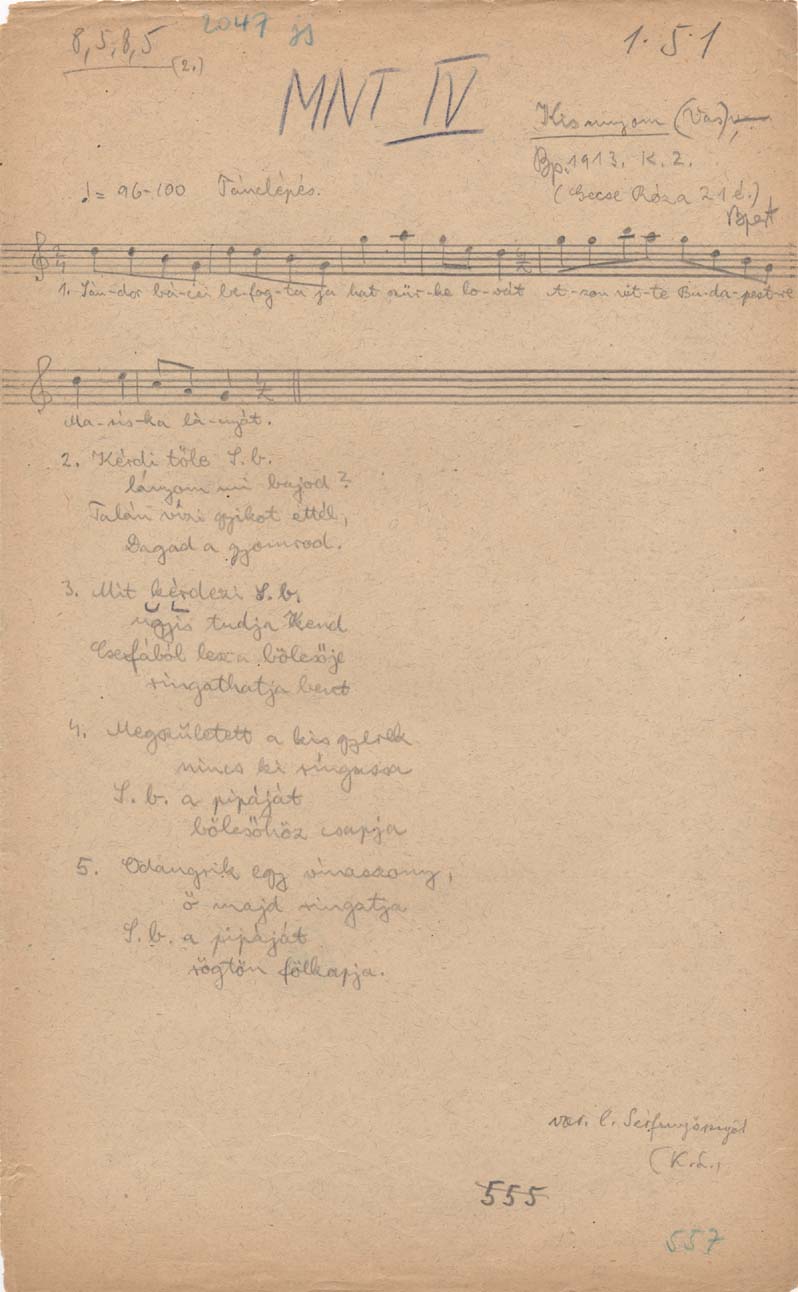 8,5,8,5
(2.)
2047 js
1.5.1
MNT IV
Kisunyom (Vas)
Bp. 1913. K. Z.
(Gecse Róza 21 é.)
♩= 96-100 Tánclépés.
2/4
1. Sán-dor bá-csi be-fog-ta ja hat szür-ke lo-vát A-zon vit-te Bu-da-pest-re
Ma-ris-ka lá-nyát.
2. Kérdi tőle S. b.
lányom mi bajod?
Talán vizi gyikot ettél,
Dagad a gyomrod.
3. Mit kérdezi S. b.
ugyis tudja Kend
Cserfából lesz a bölcsője
ringathatja bent
4. Megszületett a kis gyerek
nincs ki ringassa
S. b. a pipáját
bölcsőhöz csapja
5. Odaugrik egy vinaszony,
ő majd ringatja
S. b. a pipáját
rögtön fölkapja.
var. l.
(K. á.)
555
557